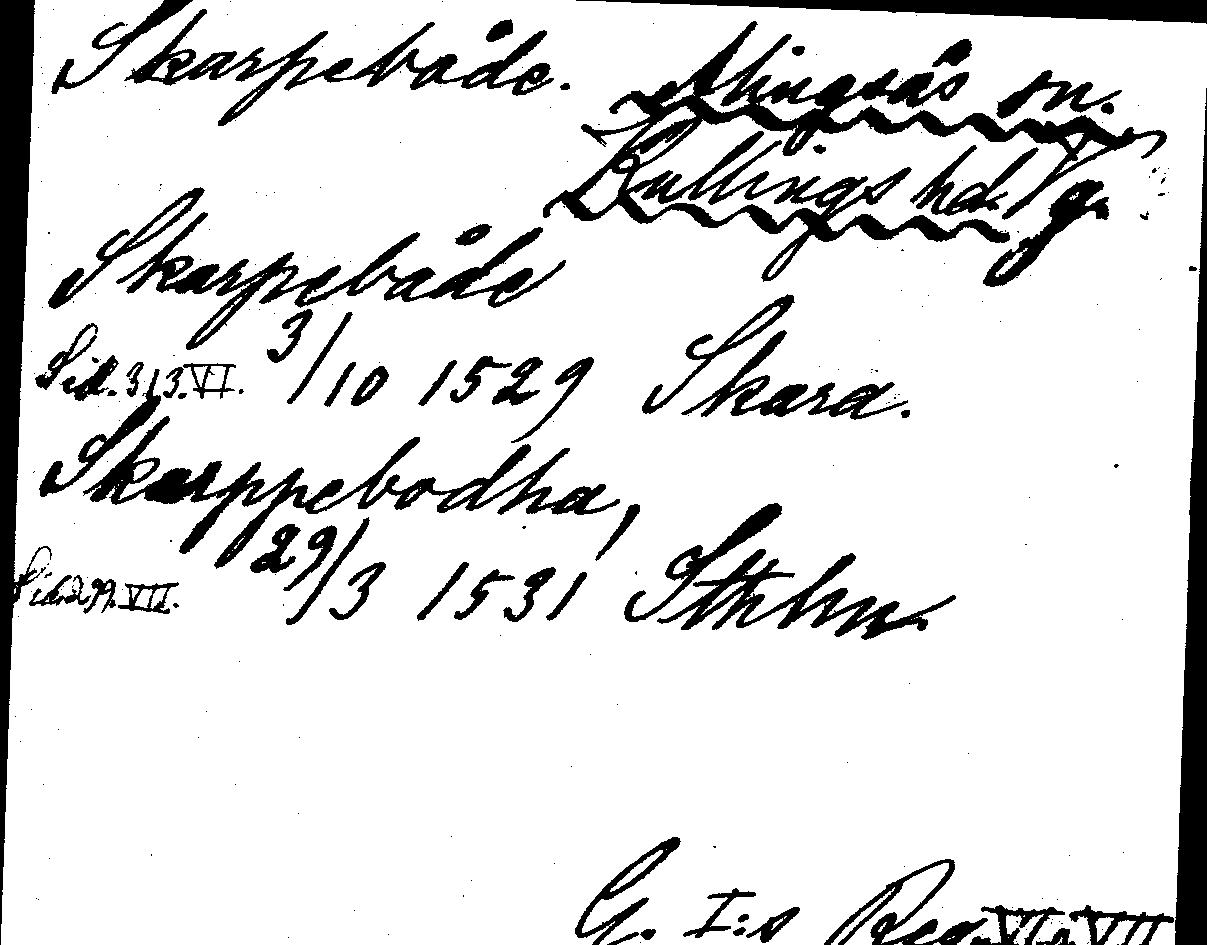 Skarpebåde. Alingsås sn.
Kullings hd. Vg.
Skarpebåde
Sid. 313. VI. 3/10 1529 Skara.
Skarppebodha,
Sid. 299. VII. 29/3 1531 Sthlm.
G. I:s Reg. VI o. VII